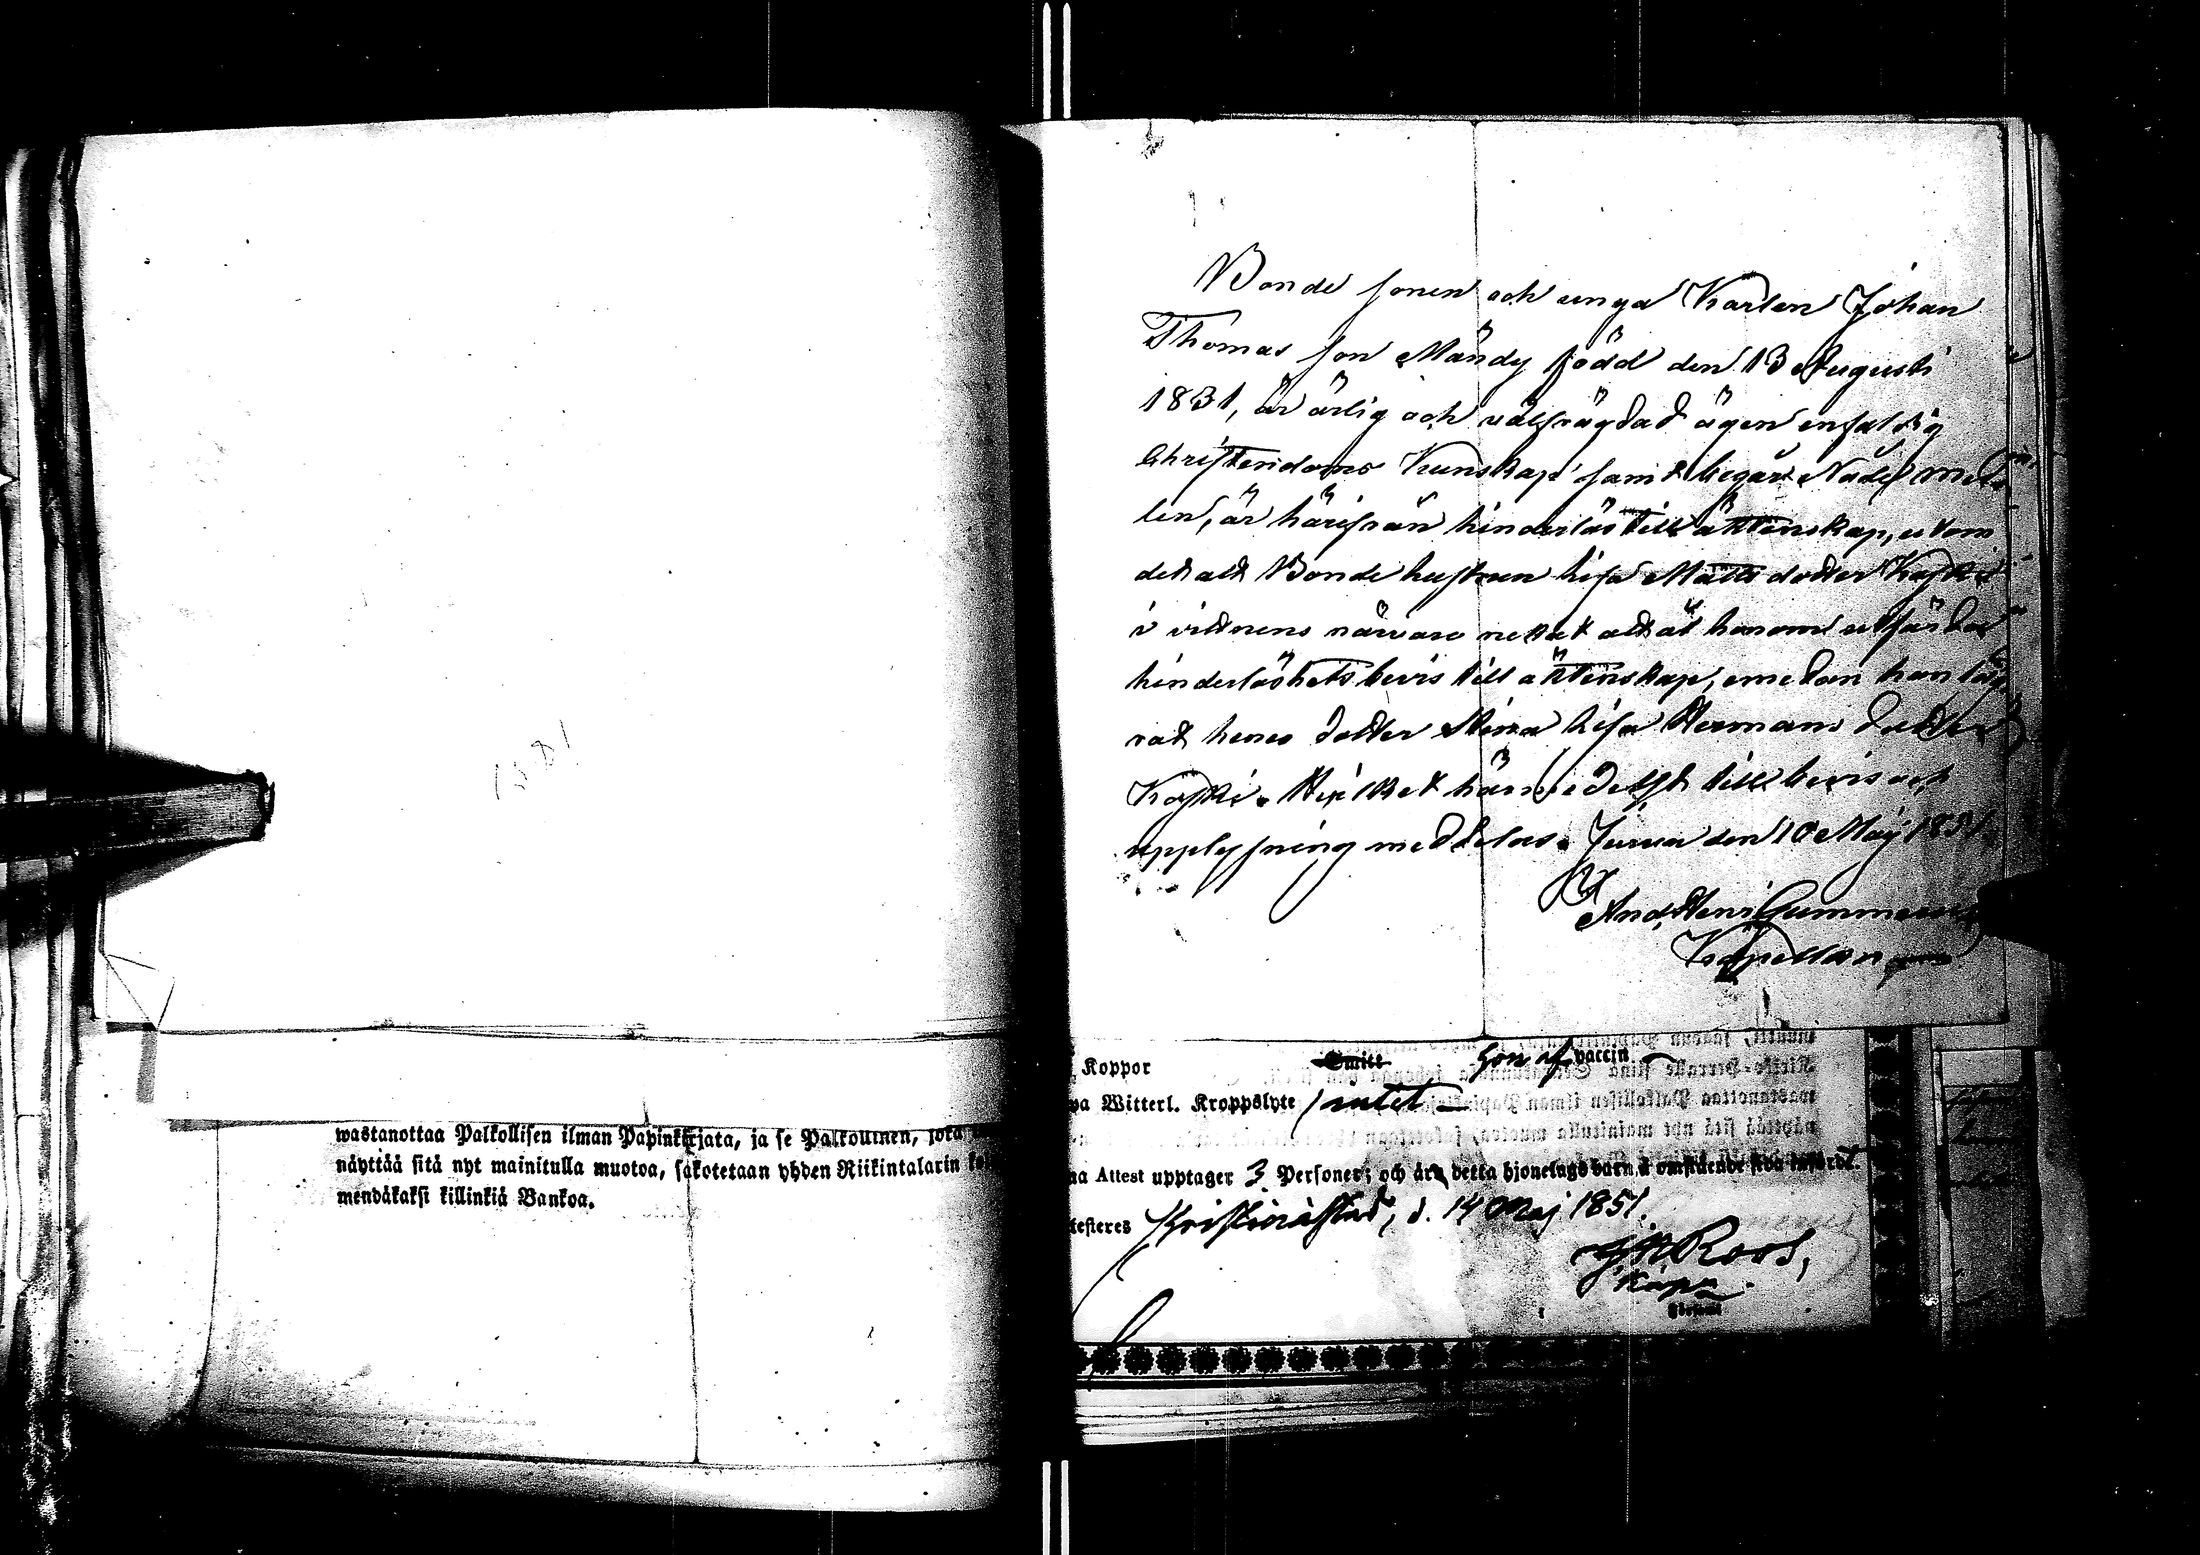 1851
wastanottaa Palkollisen ilman Papinkirjata, ja se Palkollinen, joka
näyttää sitä nyt mainitulla muotoa, sakotetaan yhden Riikintalarin
mendäkaksi killinkiä Bankoa.
Bonde sonen och unga Karlen Johan
Thomas son Mändy född den 13 Augusti
1831, är ärlig och välfrägdad ägen enfaldig
Christendoms Kunskap samt begår Nådes med
len, är härifrån hinderlös till äktenskap, utom
det att Bonde hustrun Lisa Matts dotter Koski
i vittnens närvaro nekat att åt honom utfärda
hinderlöshets bevis till äktenskap, emedan han läg
rat henes dotter Stina Lisa Hermans dotter
Koski. Hvilket härmedelst till bevis och
upplysning meddelas. Jurva den 10 Maij 1851
And. Henr. Gummerus
Kapellan
Koppor Smitt son af vaccin
pa Witterl. Kroppslyte
na Attest upptager 3 Personer; och äro detta hjonelags barn å omstående sida införde.
testeres Christinæstad, d. 14 Maj 1851.
Roos,
Kapn